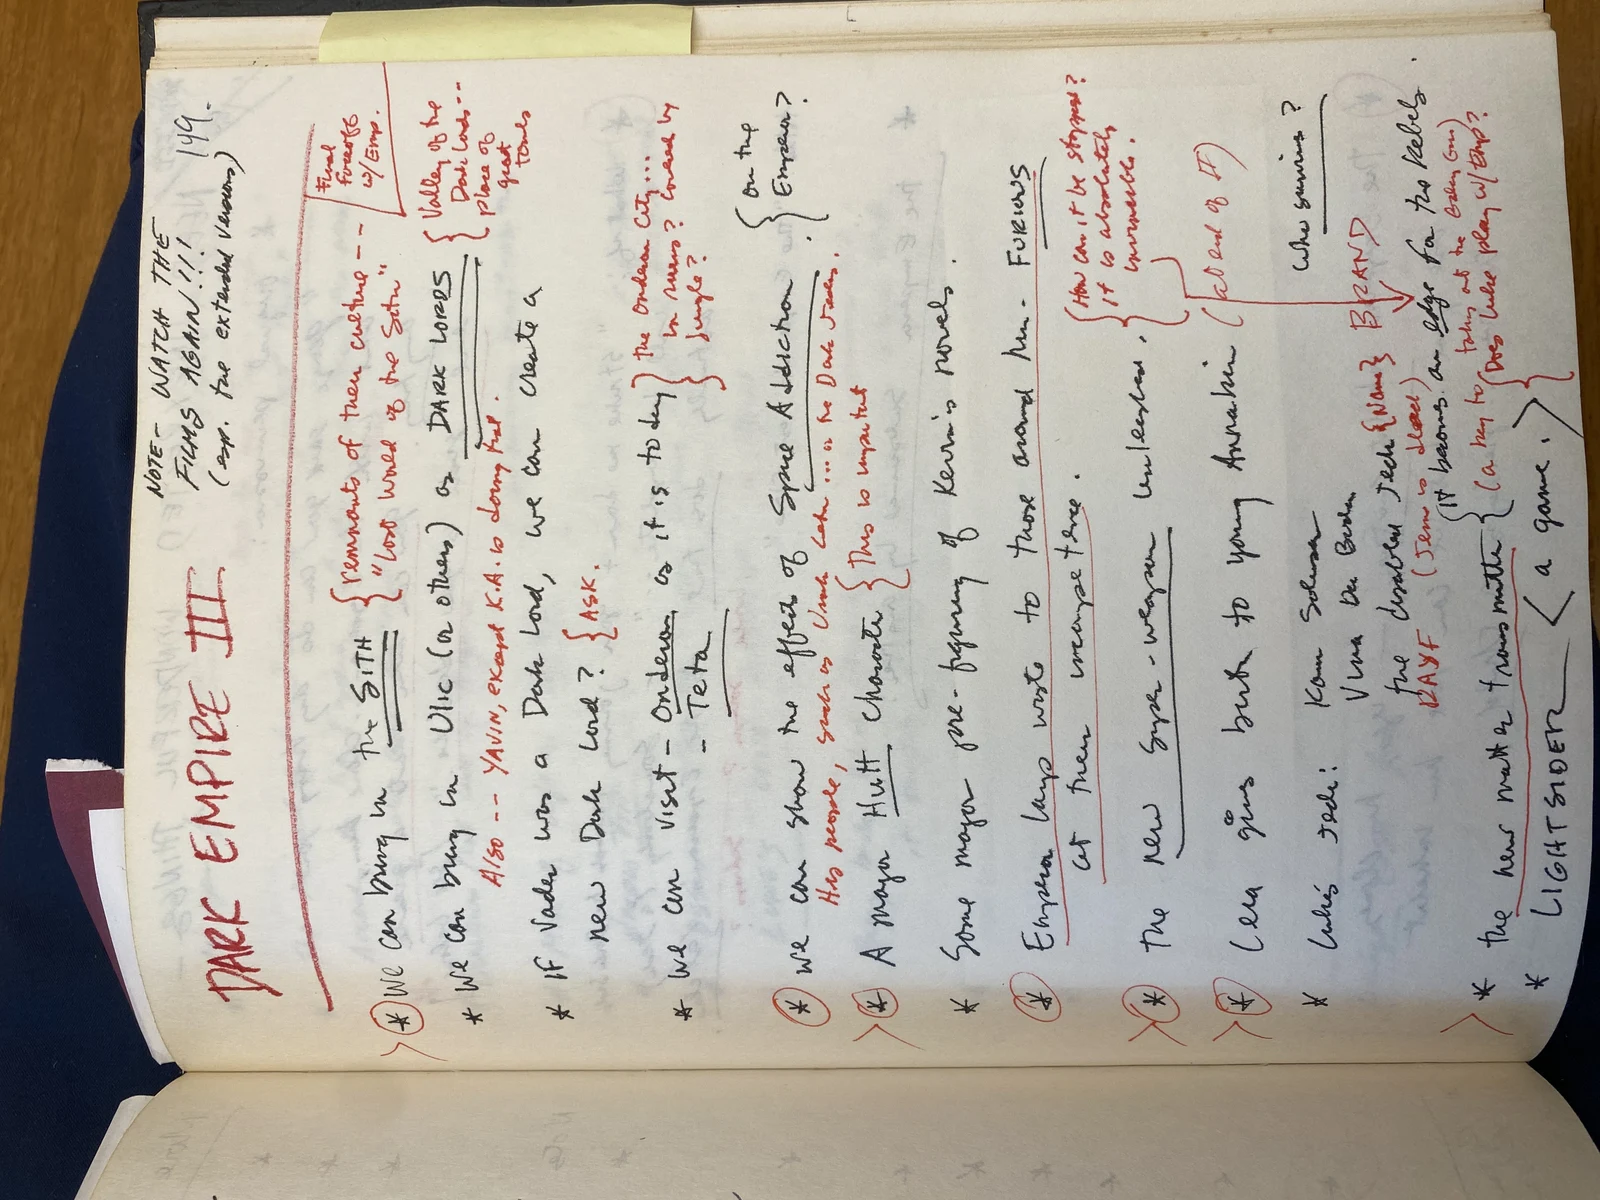 NOTE - WATCH THE
FILMS AGAIN!!!
(esp. the extended versions)
149.
DARK EMPIRE III
Final
Faceoff
w/Emp.
* We can bring in the SITH { remnants of their culture ---
"Lost World of the Sith"
* We can bring in Ulic (or others) as DARK LORDS { Valley of the
Dark Lords --
place of
great
tombs
Also -- YAVIN, except K.A. is doing that.
* IF Vader was a Dark Lord, we can create a
new Dark Lord? { ASK.
* We can visit - Onderon as it is today } The Onderon City...
in ruins? Covered by
jungle?
- Teta
* We can show the effects of Spice Addiction. { on the
Emperor?
His people, such as ... or the Dark Jedi.
* A major Hutt character { This is important
* Some major pre-figuring of Kevin's novels.
* Emperor lays waste to those around him - FURIOUS
at their incompetence.
* The new super-weapon unleashed. { How can it be stopped?
It is absolutely
invincible.
* Leia gives birth to young Annakin (at end of II)
* Luke's Jedi: Kam Solusar
Vima Da Boda
Who survives?
the disabled Jedi {Name} BRAND
RAYF (Jem is dead)
* The new matter transmitter { It becomes an edge for the Rebels.
(a key to taking out the Galaxy Gun)
Does Luke play w/Emp?
* LIGHTSIDER < a game. >